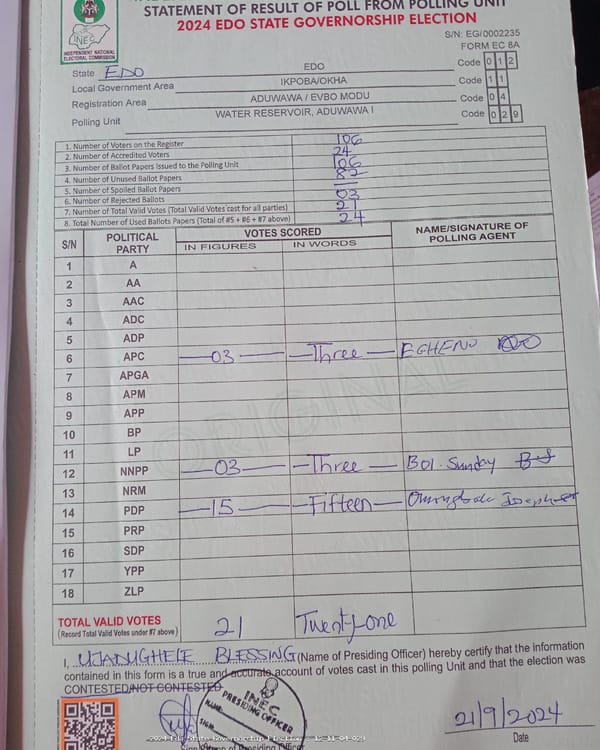 STATEMENT OF RESULT OF POLL FROM POLLING UNIT
2024 EDO STATE GOVERNORSHIP ELECTION
S/N: EG/0002235
FORM EC 8A
INEC
INDEPENDENT NATIONAL
ELECTORAL COMMISSION
State EDO EDO Code 0 1 2
Local Government Area IKPOBA/OKHA Code 1 1
Registration Area ADUWAWA / EVBO MODU Code 0 4
Polling Unit WATER RESERVOIR, ADUWAWA I Code 0 2 9
1. Number of Voters on the Register 106
2. Number of Accredited Voters 24
3. Number of Ballot Papers Issued to the Polling Unit 106
4. Number of Unused Ballot Papers 82
5. Number of Spoiled Ballot Papers —
6. Number of Rejected Ballots 03
7. Number of Total Valid Votes (Total Valid Votes cast for all parties) 21
8. Total Number of Used Ballots Papers (Total of #5 + #6 + #7 above) 24
S/N POLITICAL PARTY VOTES SCORED NAME/SIGNATURE OF POLLING AGENT
IN FIGURES IN WORDS
1 A
2 AA
3 AAC
4 ADC
5 ADP
6 APC 03 Three EGHENU
7 APGA
8 APM
9 APP
10 BP
11 LP
12 NNPP 03 Three BOI. Sunday
13 NRM
14 PDP 15 Fifteen
15 PRP
16 SDP
17 YPP
18 ZLP
ORIGINAL
TOTAL VALID VOTES 21 Twenty-one
(Record Total Valid Votes under #7 above)
I, UJADUGHELE BLESSING (Name of Presiding Officer) hereby certify that the information
contained in this form is a true and accurate account of votes cast in this polling Unit and that the election was
CONTESTED/NOT CONTESTED
INEC
PRESIDING OFFICER
NAME
SIGN
21/9/2024
Signature of Presiding Officer
Date